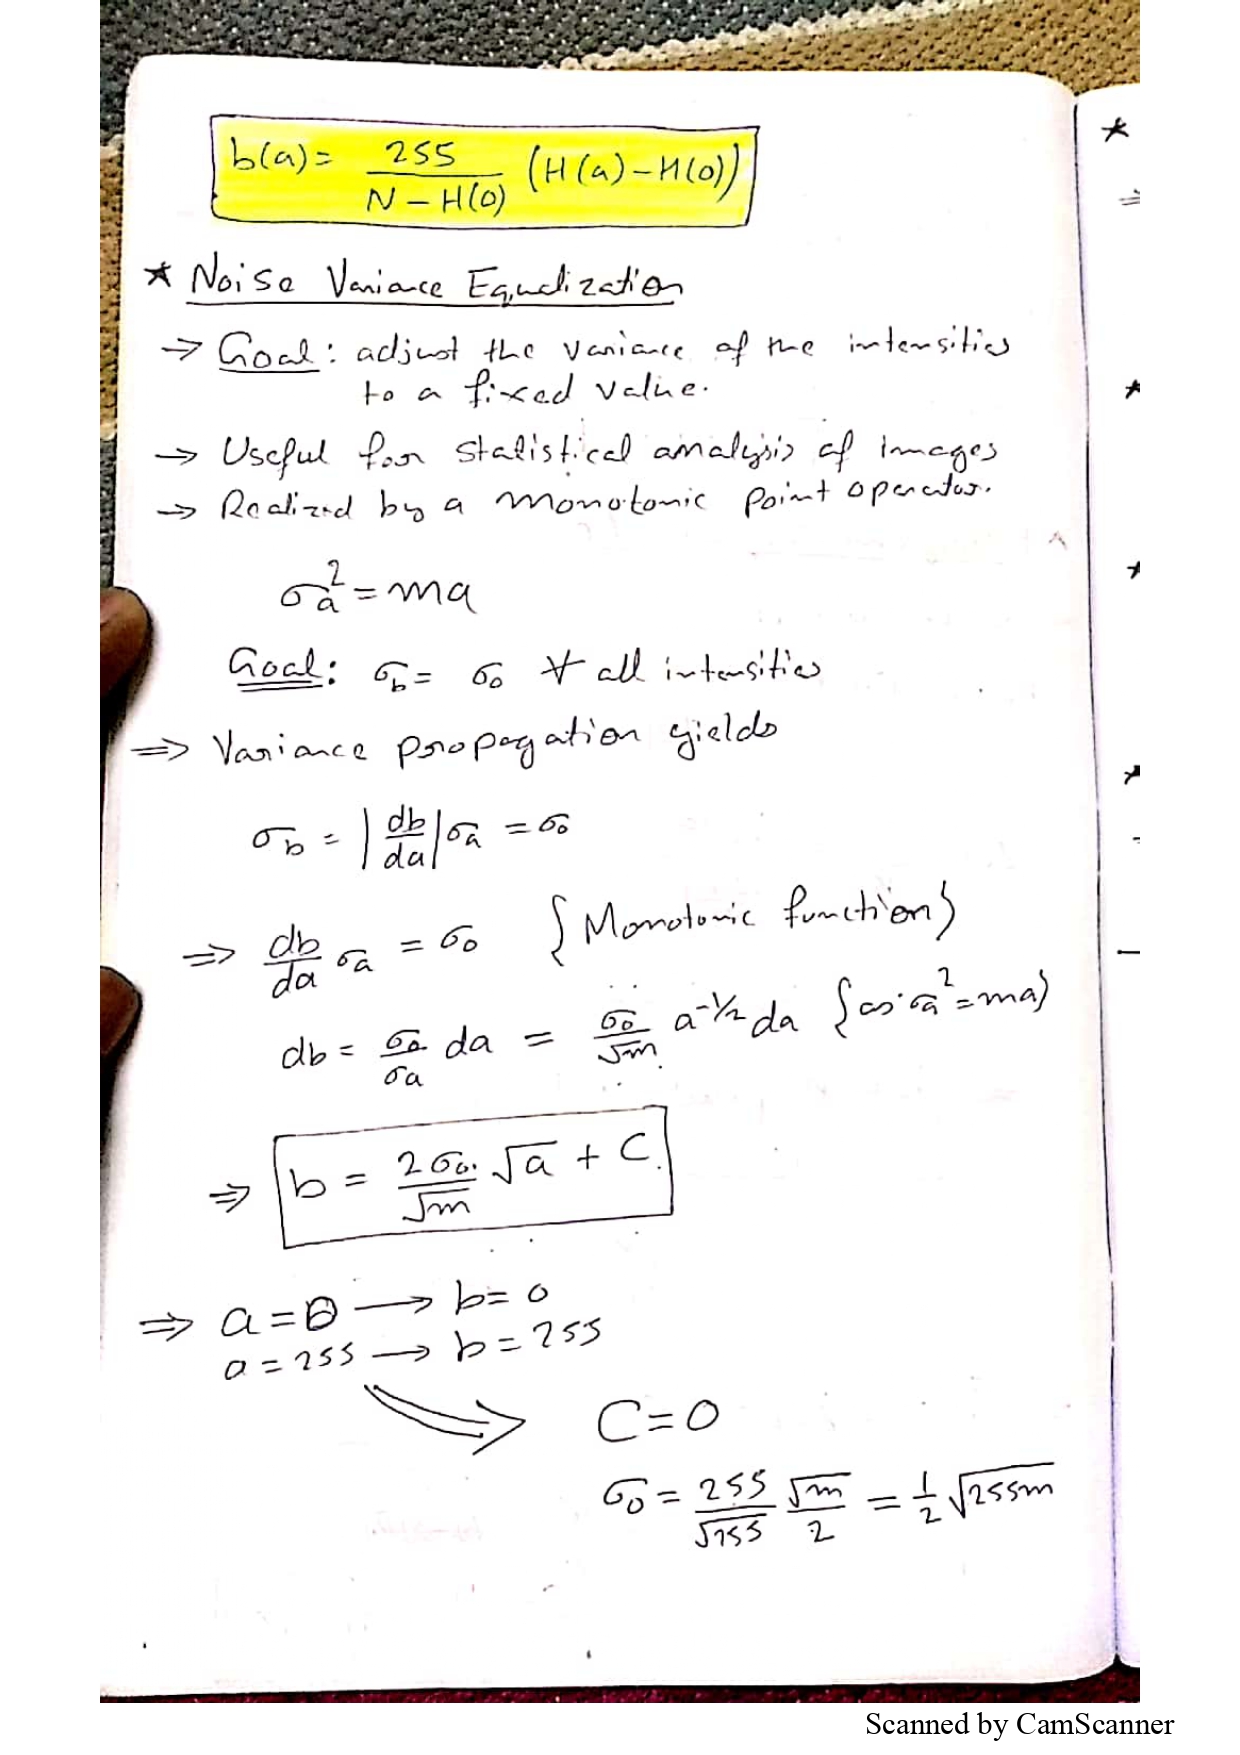 b(a) = 255/(N - H(0)) (H(a) - H(0))
* Noise Variance Equalization
→ Goal: adjust the variance of the intensities
to a fixed value.
→ Useful for statistical analysis of images
→ Realized by a monotonic point operator.
σₐ² = ma
Goal: σ_b = σ₀ ∀ all intensities
⇒ Variance propagation yields
σ_b = |db/da| σₐ = σ₀
⇒ db/da σₐ = σ₀ {Monotonic function}
db = σ₀/σₐ da = σ₀/√m a^(-1/2) da {as σₐ² = ma}
⇒ b = 2σ₀/√m √a + C
⇒ a = 0 → b = 0
a = 255 → b = 255
⇒ C = 0
σ₀ = 255/√255 √m/2 = 1/2 √255m
Scanned by CamScanner